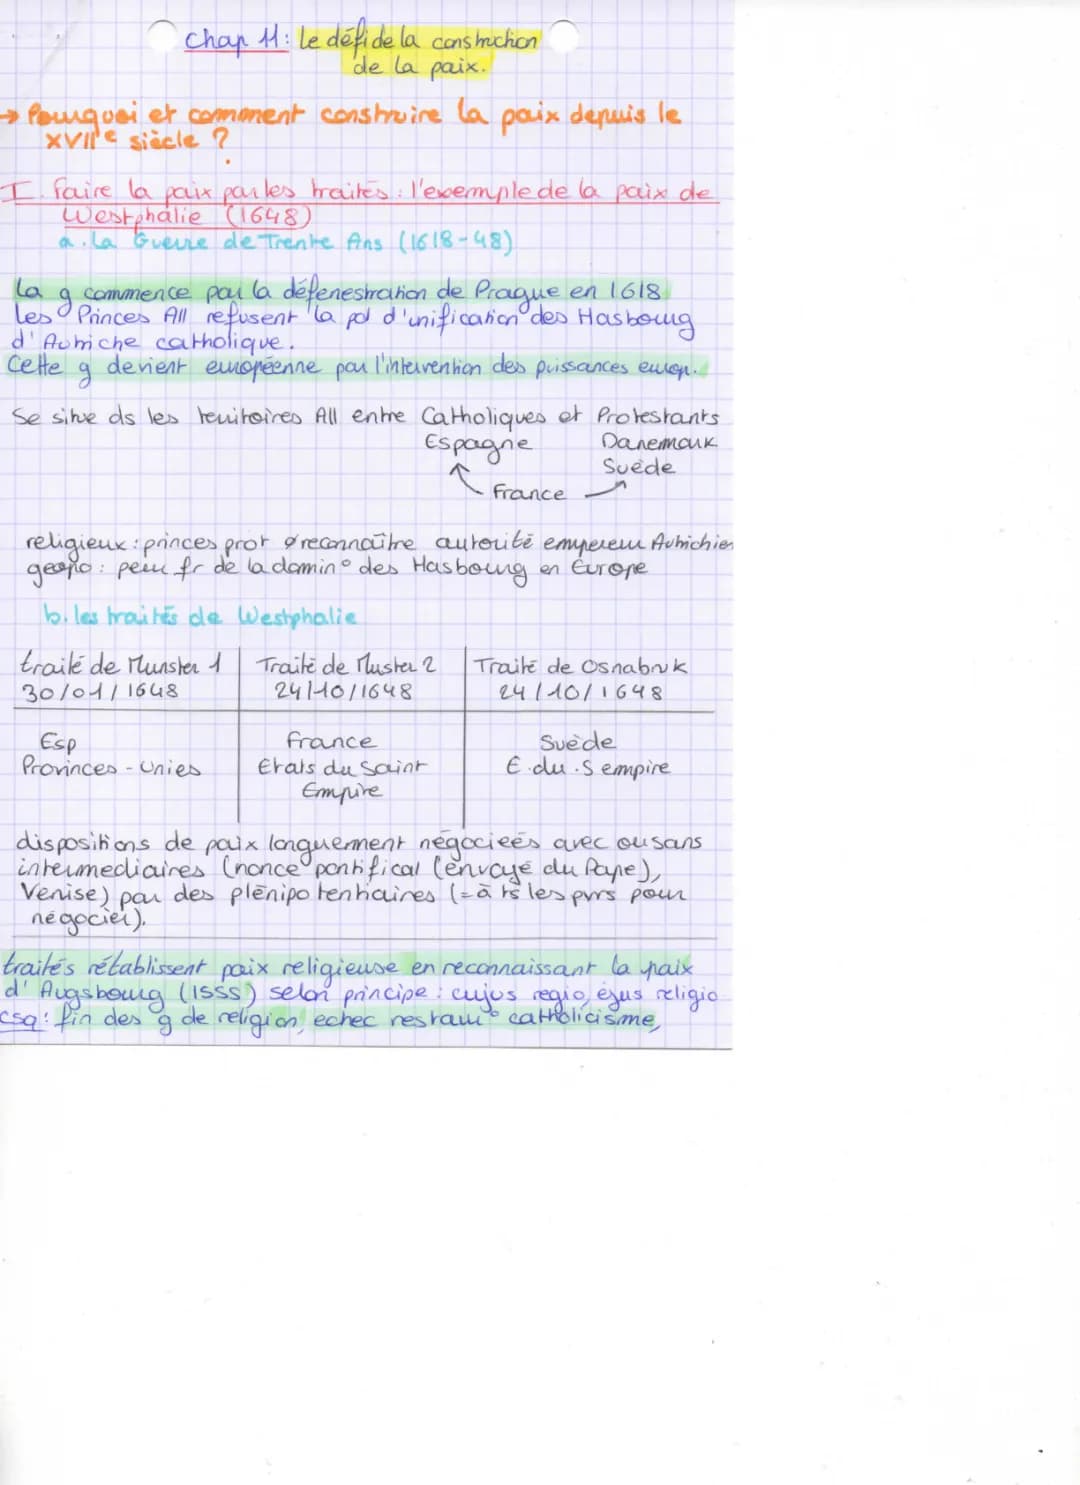 Chap 11: Le défi de la construction
de la paix.
→ Pourquoi et comment construire la paix depuis le
XVIIe siècle ?
I. Faire la paix par les traités : l'exemple de la paix de
Westphalie (1648)
a. La Guerre de Trente Ans (1618-48)
La g commence par la défenestration de Prague en 1618
Les Princes All refusent la pol d'unification des Hasbourg
d'Autriche catholique.
Cette g devient européenne par l'intervention des puissances europ.
Se situe ds les territoires All entre Catholiques et Protestants
Espagne Danemark
Suède
France
religieux : princes prot ø reconnaître autorité empereur Autrichien
geopo : peur fr de la domin° des Hasbourg en Europe
b. les traités de Westphalie
traité de Munster 1 Traité de Muster 2 Traité de Osnabruk
30/01/1648 24/10/1648 24/10/1648
Esp France Suède
Provinces-Unies Etats du Saint E. du S empire
Empire
dispositions de paix longuement négociéés avec ou sans
intermediaires (nonce pontifical (envoyé du Pape),
Venise) par des plénipotentiaires (= à ts les pvrs pour
négocier).
traités rétablissent paix religieuse en reconnaissant la paix
d'Augsbourg (1555) selon principe : cujus regio, ejus religio
csq : fin des g de religion, echec restaur° catholicisme,